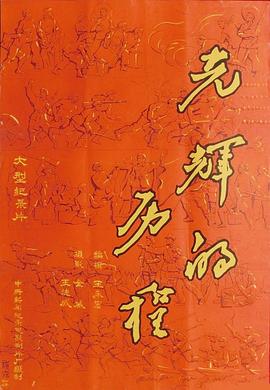 光辉的
历程
大型纪录片
编辑
摄影
中央新闻纪录电影制片厂摄制